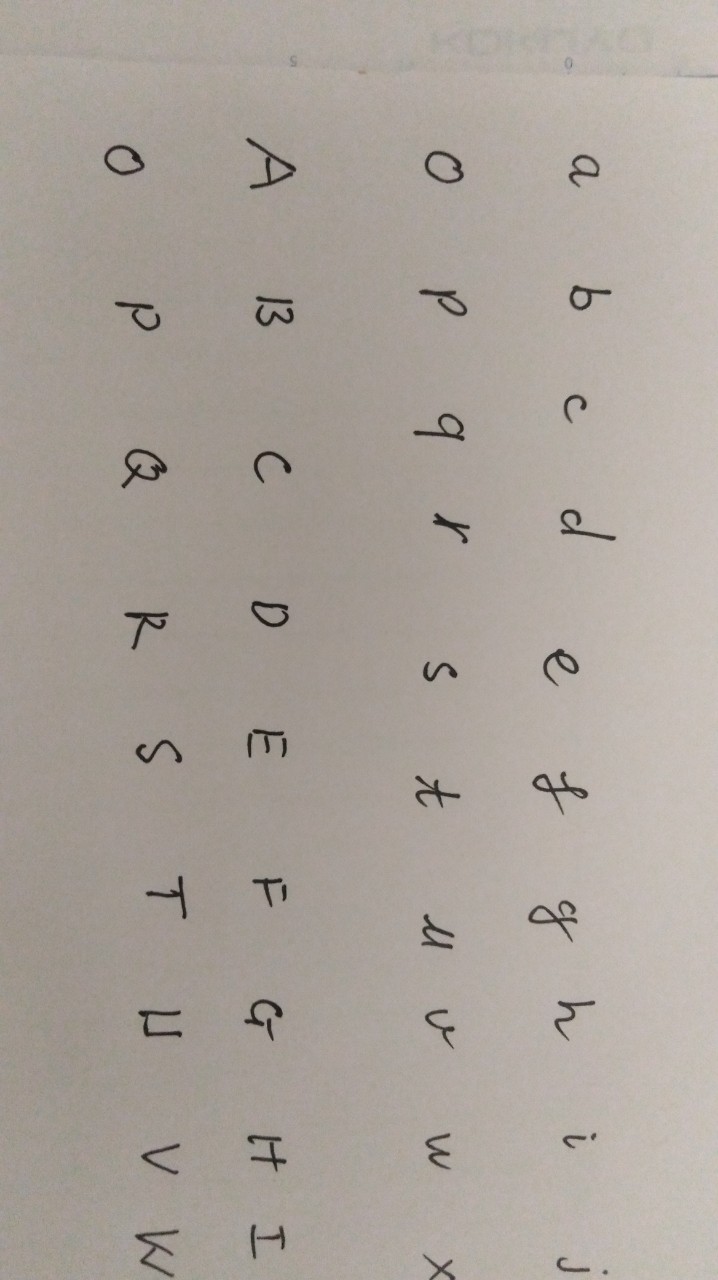 a b c d e f g h i j
o p q r s t u v w x
A B C D E F G H I
O P Q R S T U V W